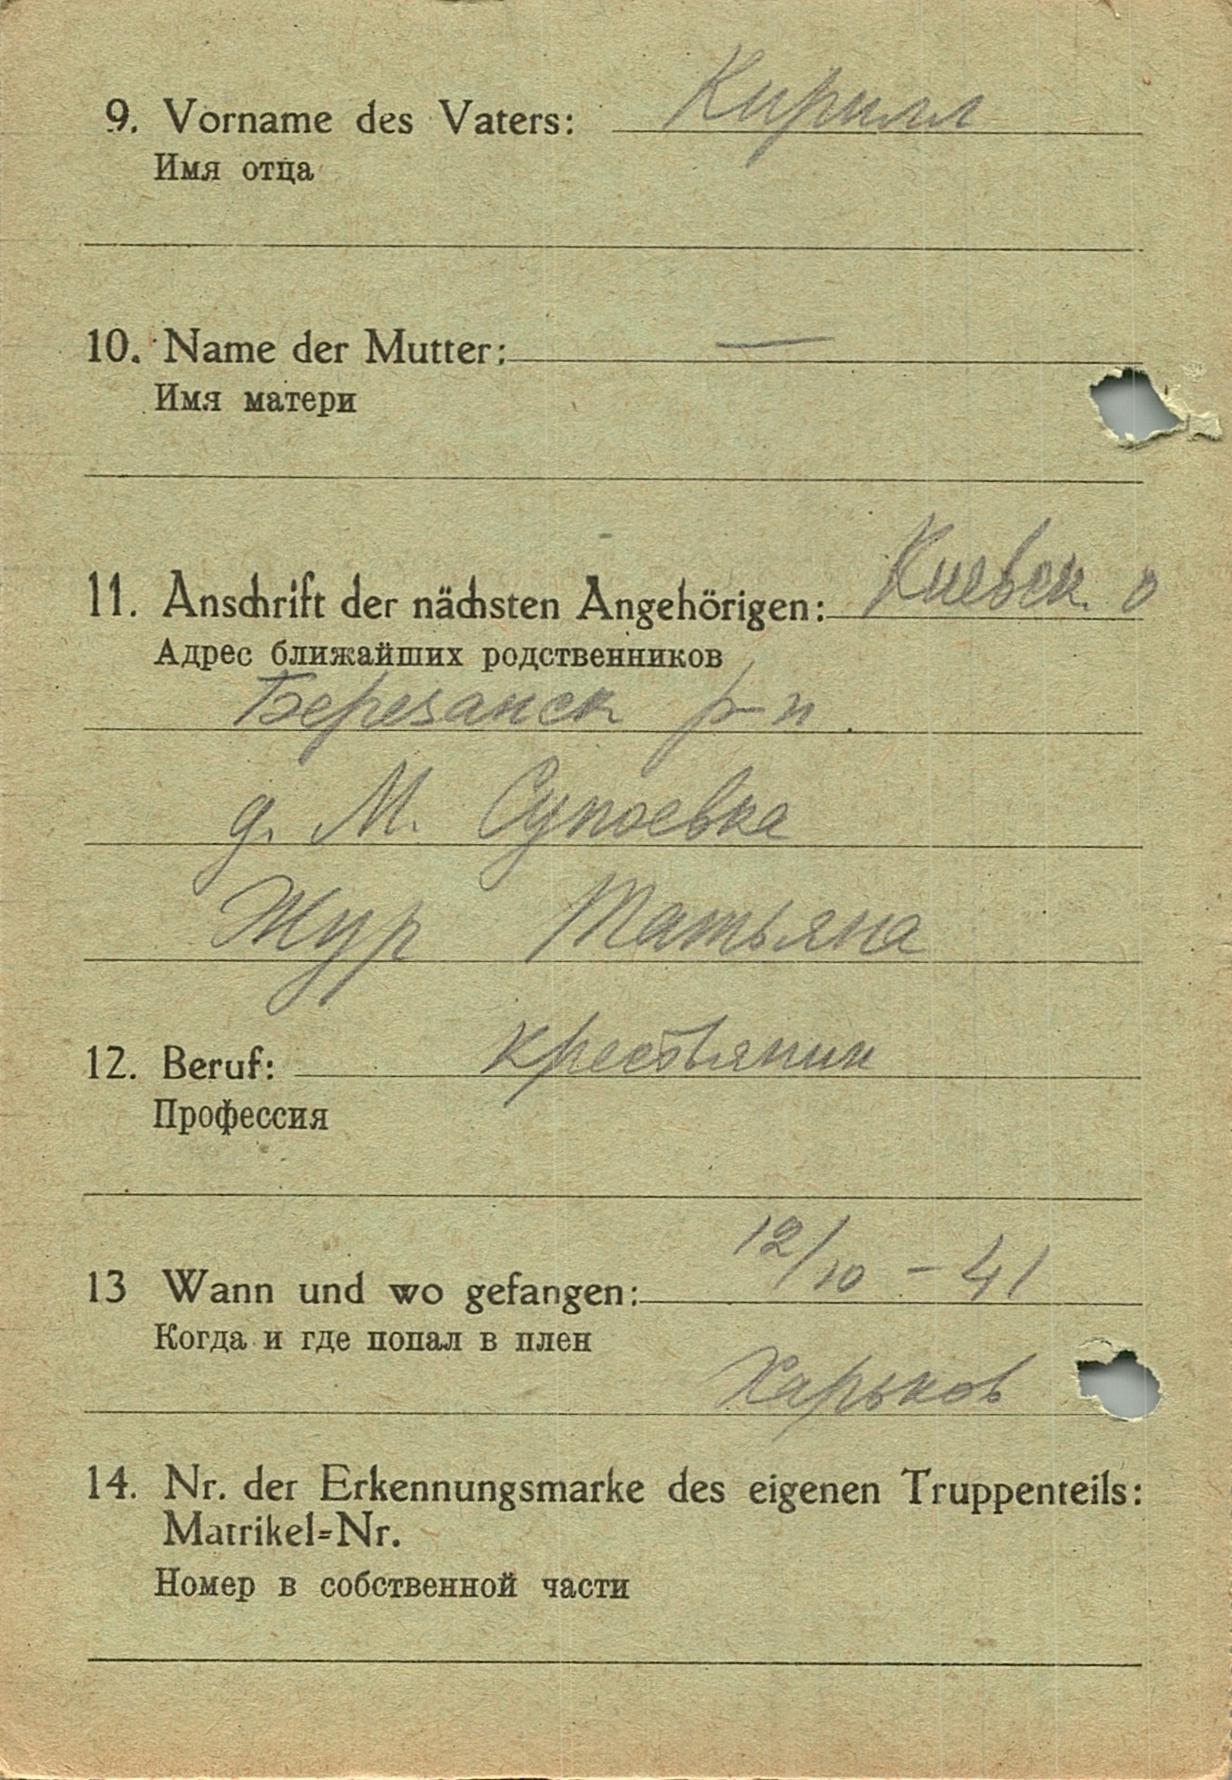 9. Vorname des Vaters: Кирилл
Имя отца
10. Name der Mutter: —
Имя матери
11. Anschrift der nächsten Angehörigen: Киевск. о
Адрес ближайших родственников
Березанск р-н.
д. М. Супоевка
Жур Татьяна
12. Beruf: крестьянин
Профессия
13 Wann und wo gefangen: 12/10 - 41
Когда и где попал в плен
Харьков
14. Nr. der Erkennungsmarke des eigenen Truppenteils:
Matrikel=Nr.
Номер в собственной части